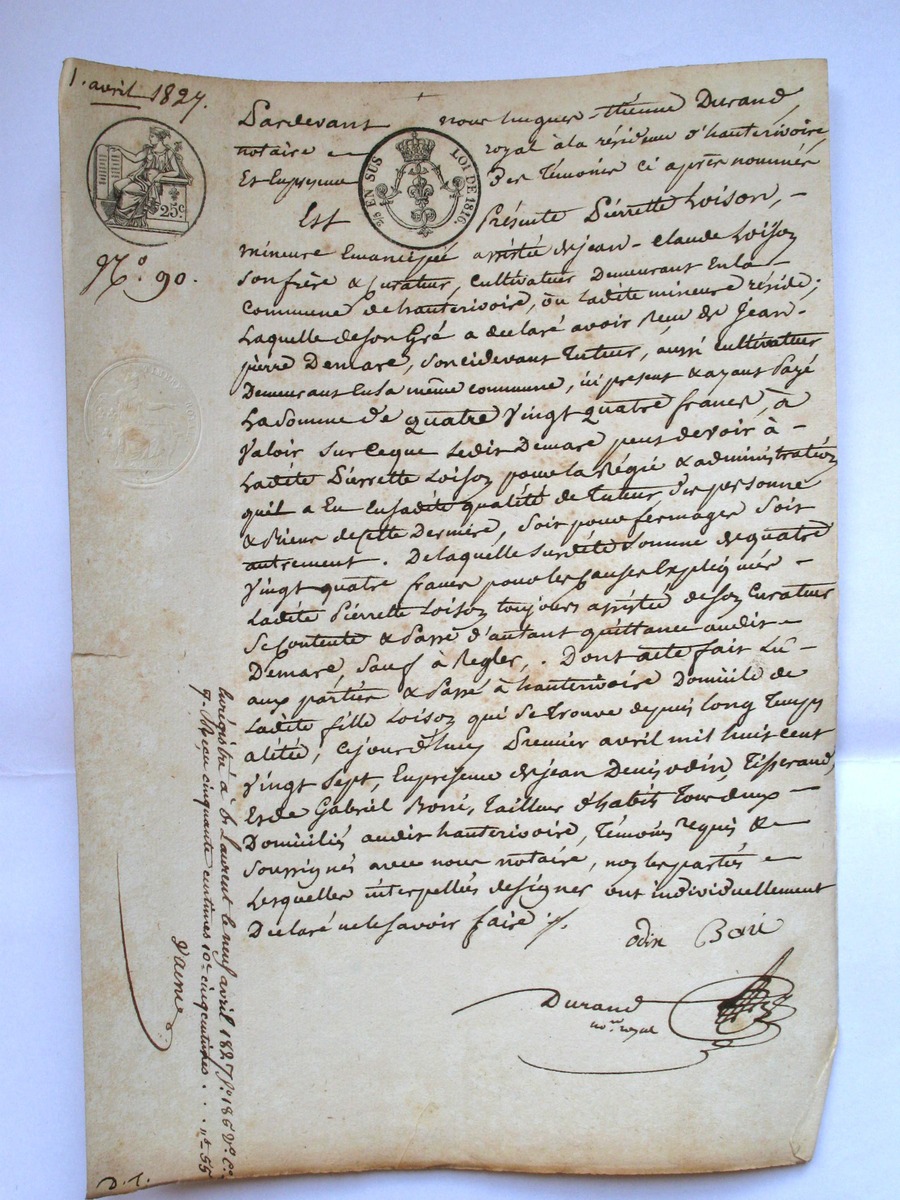 1. avril 1827.
25c
EN SUS
LOI DE 1816.
N.o 90.
Pardevant nous Jacques-étienne Durand,
notaire royal à la résidence d'hauterivoire
Et En presence des Témoins ci après nommés
Est Présente Pierrette Loison, -
mineure Emancipée assistée de jean-Claude Loison
son frère & Curateur, Cultivateur Demeurant En la
Commune de hauterivoire, où Ladite mineure réside;
Laquelle de son Gré a déclaré avoir Reçu de Jean-
pierre Demare, son cidevant Tuteur, aussi cultivateur
Demeurant En la même commune, ici present & ayant Payé
La Somme de quatre Vingt quatre francs, à
Valoir sur Ceque Ledit Demare peut devoir à -
Ladite Pierrette Loison pour la Régie & administration
quil a Eu En sadite qualité de tuteur des personne
& Biens de cette Dernière, soit pour fermages soit
autrement. De laquelle susdite somme de quatre
Vingt quatre francs pour les Causes Expliquées -
Ladite Pierrette Loison toujours assistée de son Curateur
Se Contente & Passe d'autant quittance audit
Demare, Sauf à Regler. Dont acte fait Lu -
aux parties & Passé à hauterivoire Domicile de
Ladite fille Loison qui se trouve depuis long Temps
alitée, Cejourd'huy Premier avril mil huit cent
Vingt Sept, En presence de jean Denis odin, Tisserand,
Et de Gabriel Boné, Tailleur d'habits Tous deux -
Domiciliés audit hauterivoire, Témoins requis &
Soussignés avec nous notaire, non les parties
Lesquelles interpellées de signer ont individuellement
Déclaré ne le savoir faire ./.
odin Boné
Durand
no.re royal
Enrégistré à St Laurent le neuf avril 1827 f.o 186 V.o C.e
9. Reçu cinquante centimes 10.e cinq centimes . . . 55
D. T.